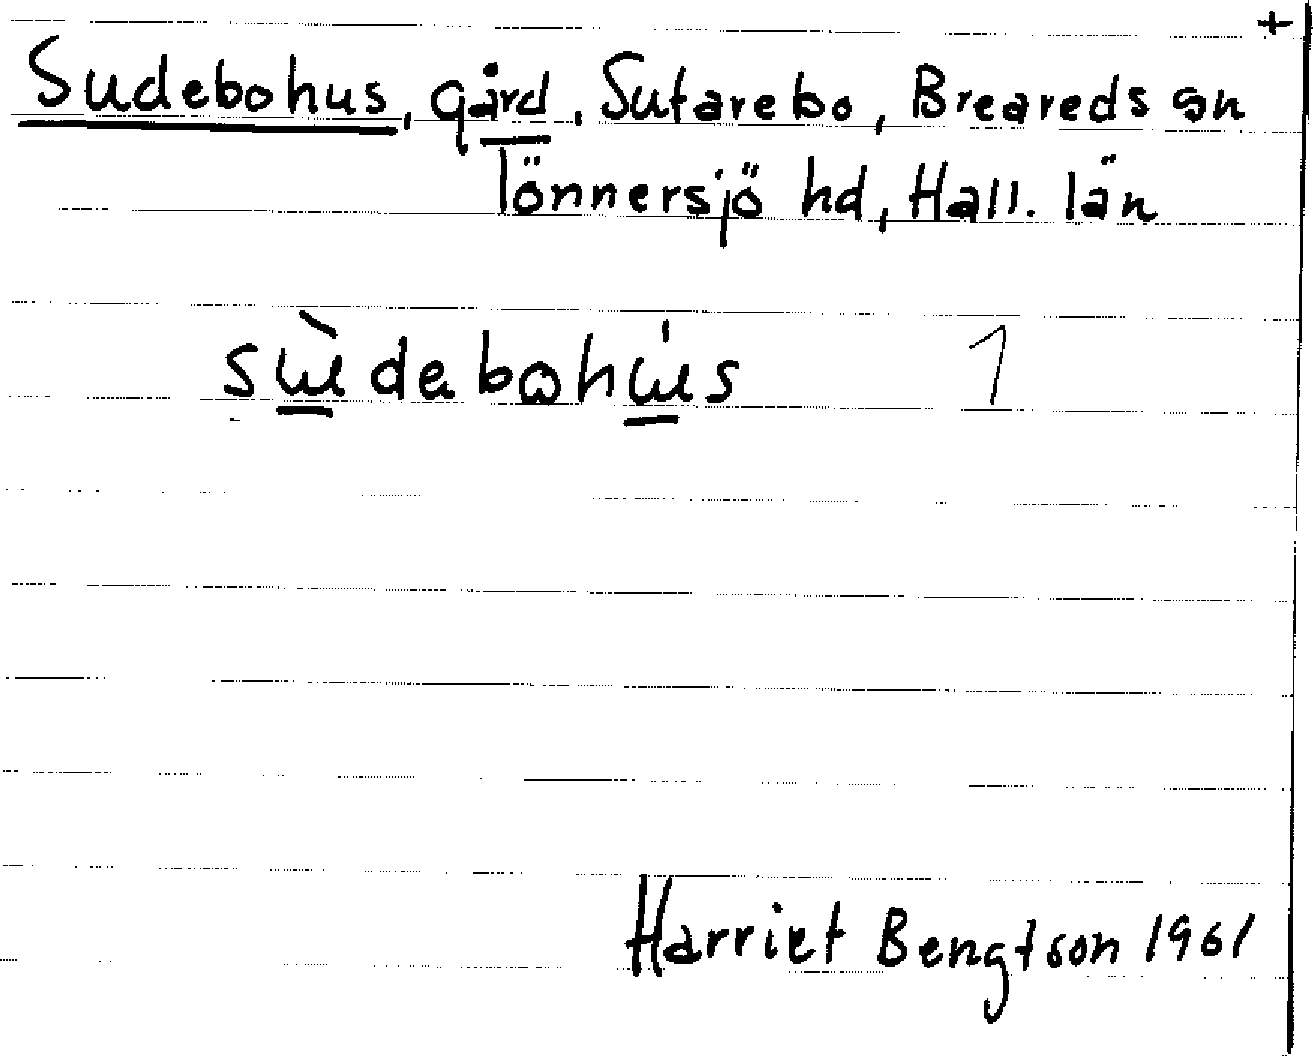 +
Sudebohus, gård, Sutarebo, Breareds sn
Tönnersjö hd, Hall. län
sɯ̀debωhɯ́s 1
Harriet Bengtson 1961